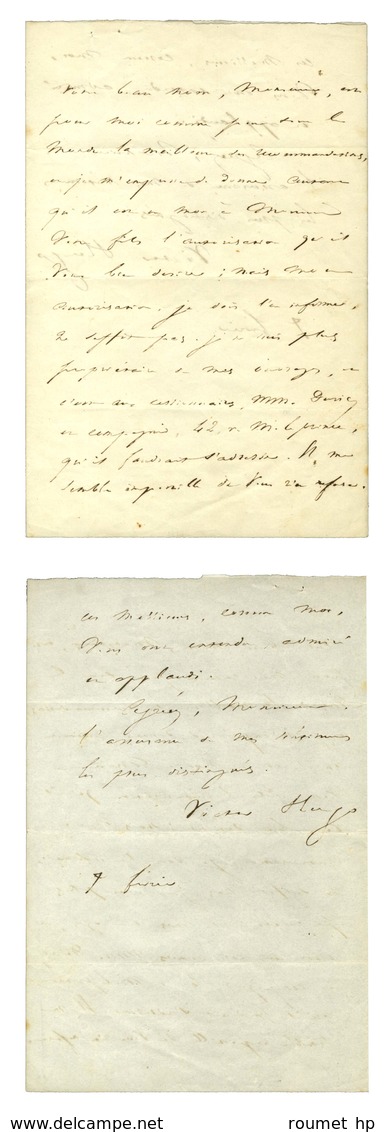 Votre beau nom, Monsieur, est
pour moi comme pour tout le
monde la meilleure des recommandations,
et je m'empresse de donner autant
qu'il est en moi à Monsieur
Votre fils l'autorisation qu'il
Veut bien désirer ; mais mon
autorisation, je dois l'en informer,
ne suffit pas. je ne suis plus
propriétaire de mes ouvrages, et
c'est aux cessionnaires, MM. Duriez
et compagnie, 42, r. M. le prince,
qu'il faudrait s'adresser. Il me
semble impossible de Vous rien refuser.
ces Messieurs, comme moi,
Vous ont entendu, admiré
et applaudi.
Agréez, Monsieur,
l'assurance de mes sentimens
les plus distingués.
Victor Hugo
7 février
© roumet hp